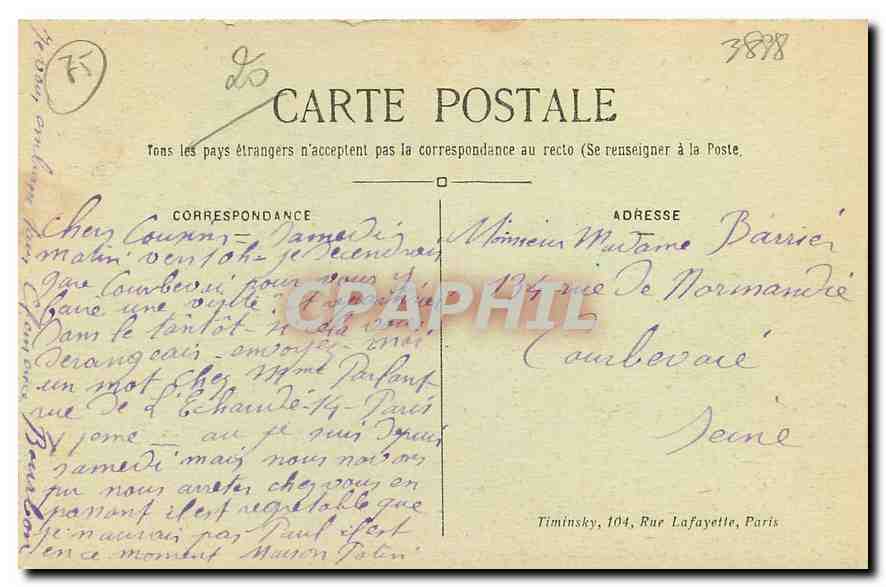 75
20
3898
CARTE POSTALE
Tous les pays étrangers n'acceptent pas la correspondance au recto (Se renseigner à la Poste,
CORRESPONDANCE
Chers Cousins - Samedi
matin vers 10h - je decendrais
gare Courbevoi pour vous y
faire une visite et
dans le tantôt - si cela vous
derangeais - envoyez - moi
un mot chez Mme Parlant
rue De L'Echaudé - 14 - Paris
- au je suis depuis
samedi mais nous navons
pu nous arreter chez vous en
passant il est regretable que
je n'aurais pas Paul il est
en ce moment Maison
Je vous embrasse tous
Bourbon
ADRESSE
Monsieur Madame Barrier
194 rue De Normandie
Courbevoie
Seine
Timinsky, 104, Rue Lafayette, Paris
CPAPHIL